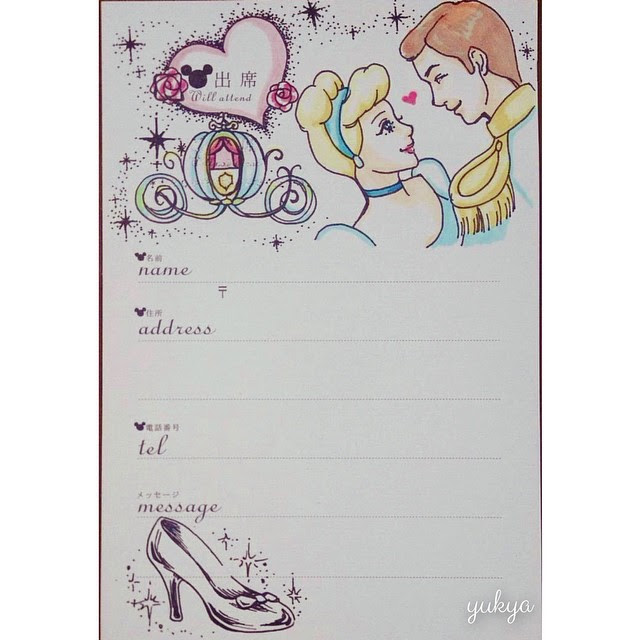 出席
Will attend
名前
name
〒
住所
address
電話番号
tel
メッセージ
message
yukya